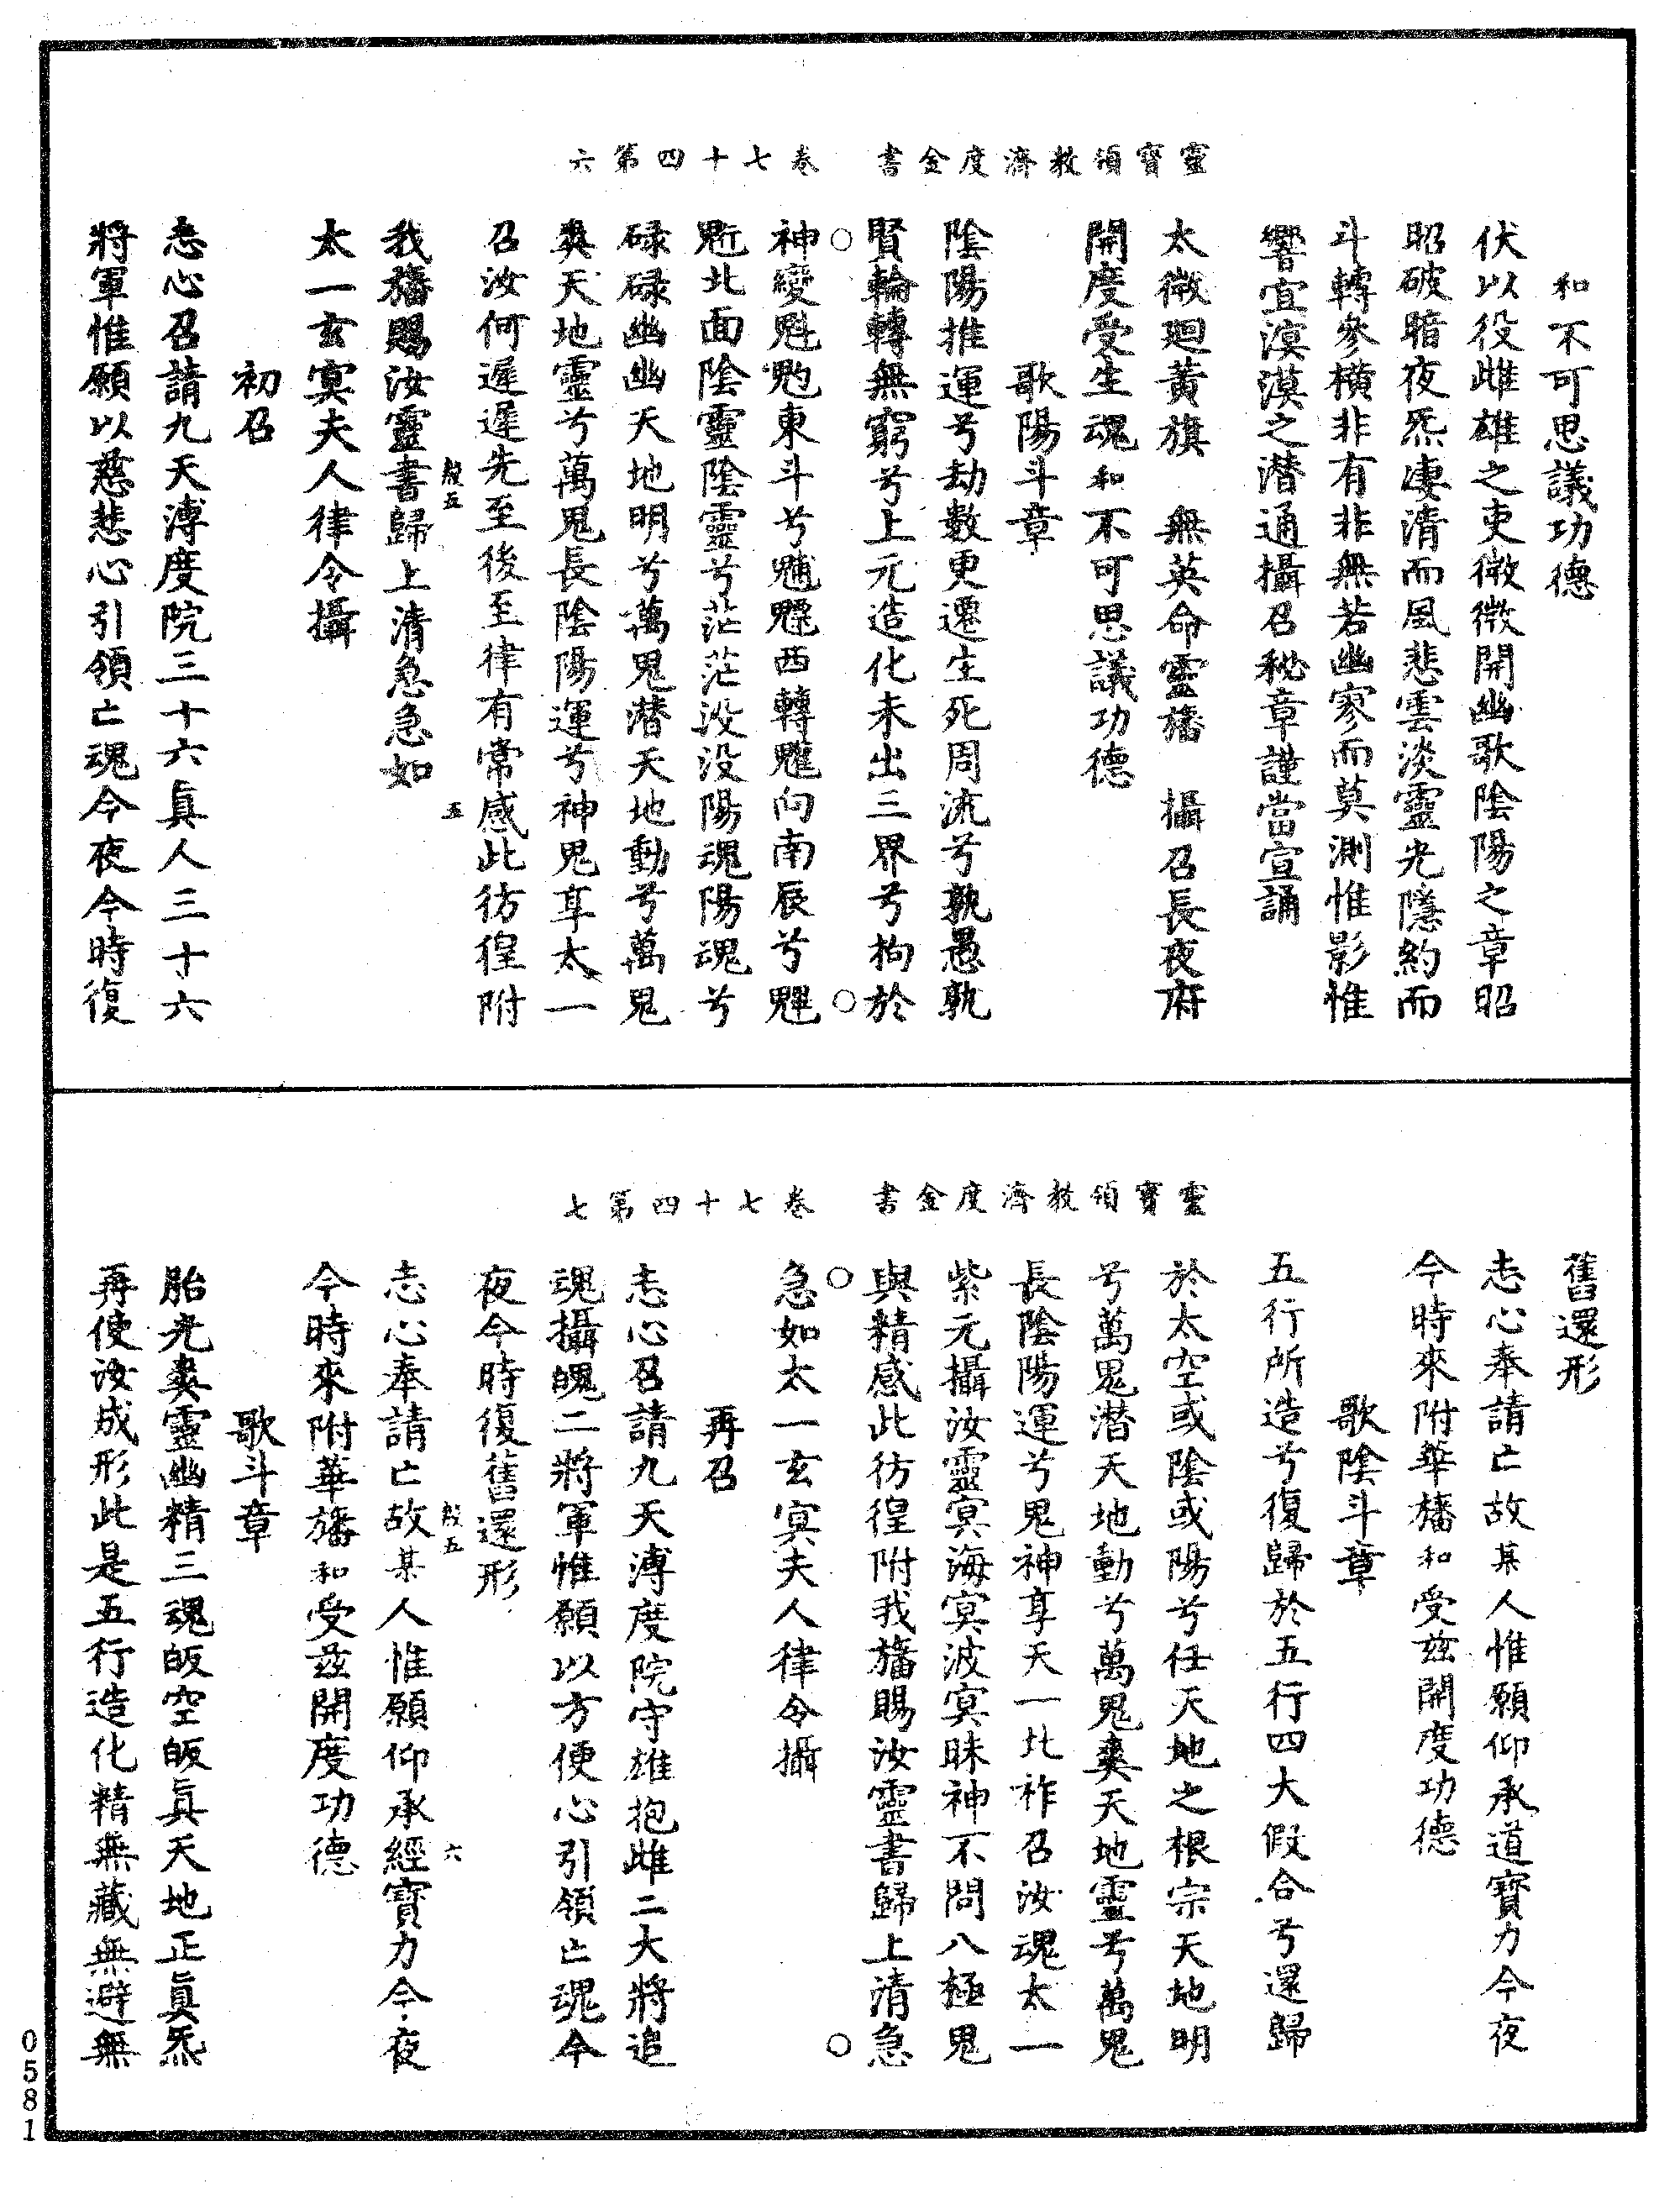 靈寶領教濟度金書　卷七十四第六
和不可思議功德
伏以役雌雄之吏微微開幽歌陰陽之章昭
昭破暗夜炁淒清而風悲雲淡靈光隱約而
斗轉參橫非有非無若幽寥而莫測惟影惟
響宜漠漠之潛通攝召秘章謹當宣誦
太微廻黃旗　無英命靈旛　攝召長夜府
開度受生魂和不可思議功德
歌陽斗章
陰陽推運兮劫數更遷生死周流兮孰愚孰
賢輪轉無窮兮上元造化未出三界兮拘於
神變魁𩲃東斗兮魓䰢西轉魓向南辰兮魒
魁北面陰靈陰靈兮茫茫沒沒陽魂陽魂兮
碌碌幽幽天地明兮萬鬼潛天地動兮萬鬼
爽天地靈兮萬鬼長陰陽運兮神鬼享太一
召汝何遲遲先至後至律有常感此彷徨附
我旛賜汝靈書歸上清急急如
殷五
五
太一玄冥夫人律令攝
初召
志心召請九天溥度院三十六真人三十六
將軍惟願以慈悲心引領亡魂今夜今時復
靈寶領教濟度金書　卷七十四第七
舊還形
志心奉請亡故某人惟願仰承道寶力今夜
今時來附華旛和受茲開度功德
歌陰斗章
五行所造兮復歸於五行四大假合兮還歸
於太空或陰或陽兮任天地之根宗天地明
兮萬鬼潛天地動兮萬鬼爽天地靈兮萬鬼
長陰陽運兮鬼神享天一北祚召汝魂太一
紫元攝汝靈冥海冥波冥昧神不問八極鬼
與精感此彷徨附我旛賜汝靈書歸上清急
急如太一玄冥夫人律令攝
再召
志心召請九天溥度院守雄抱雌二大將追
魂攝魄二將軍惟願以方便心引領亡魂今
夜今時復舊還形
殷五
六
志心奉請亡故某人惟願仰承經寶力今夜
今時來附華旛和受茲開度功德
歌斗章
胎光爽靈幽精三魂皈空皈真天地正真炁
再使汝成形此是五行造化精無藏無避無
0581